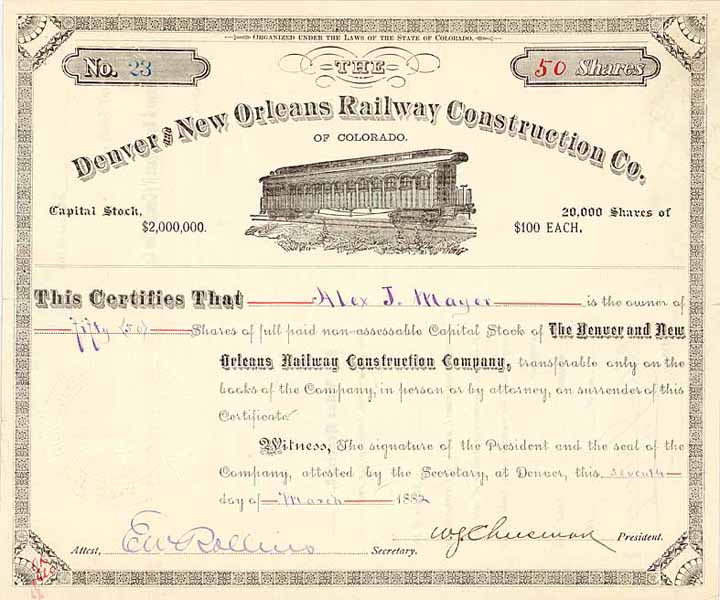 Organized under the Laws of the State of Colorado.
No. 23
THE
50 Shares
Denver and New Orleans Railway Construction Co.
OF COLORADO.
Capital Stock,
$2,000,000.
20,000 Shares of
$100 EACH.
This Certifies That Alex J. Mayer is the owner of
fifty (50) Shares of full paid non-assessable Capital Stock of The Denver and New
Orleans Railway Construction Company, transferable only on the
books of the Company, in person or by attorney, on surrender of this
Certificate.
Witness, The signature of the President and the seal of the
Company, attested by the Secretary, at Denver, this seventh
day of March 1882
Attest, EW Rollins Secretary.
W.J. Cheesman President.